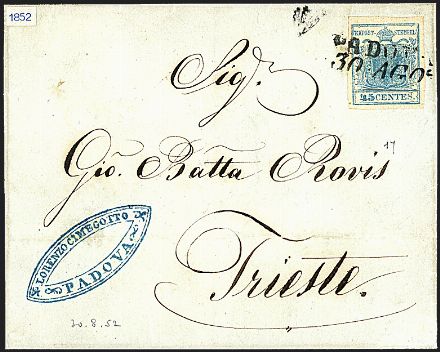 1852
KKPOST-STEMPEL
45 CENTES.
PADOVA
30 AGO
Sig.r
Gio. Batta Rovis
17
Trieste.
LORENZO CIMEGOTTO
PADOVA
30.8.52